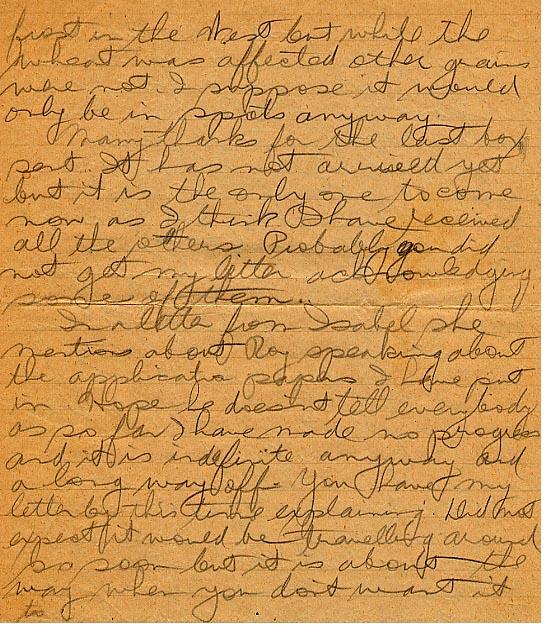 frost in the West but while the
wheat was affected other grains
were not. I suppose it would
only be in spots anyway.
Many thanks for the last box
sent. It has not arrived yet
but it is the only one to come
now as I think I have received
all the others. Probably you did
not get my letter acknowledging
some of them.
In a letter from Isabel she
mentions about Roy speaking about
the application papers I have put
in. Hope he doesn't tell everybody
as so far I have made no progress
and it is indefinite anyway and
a long way off. You have my
letter by this time explaining. Did not
expect it would be travelling around
so soon but it is about the
way when you don't want it
to